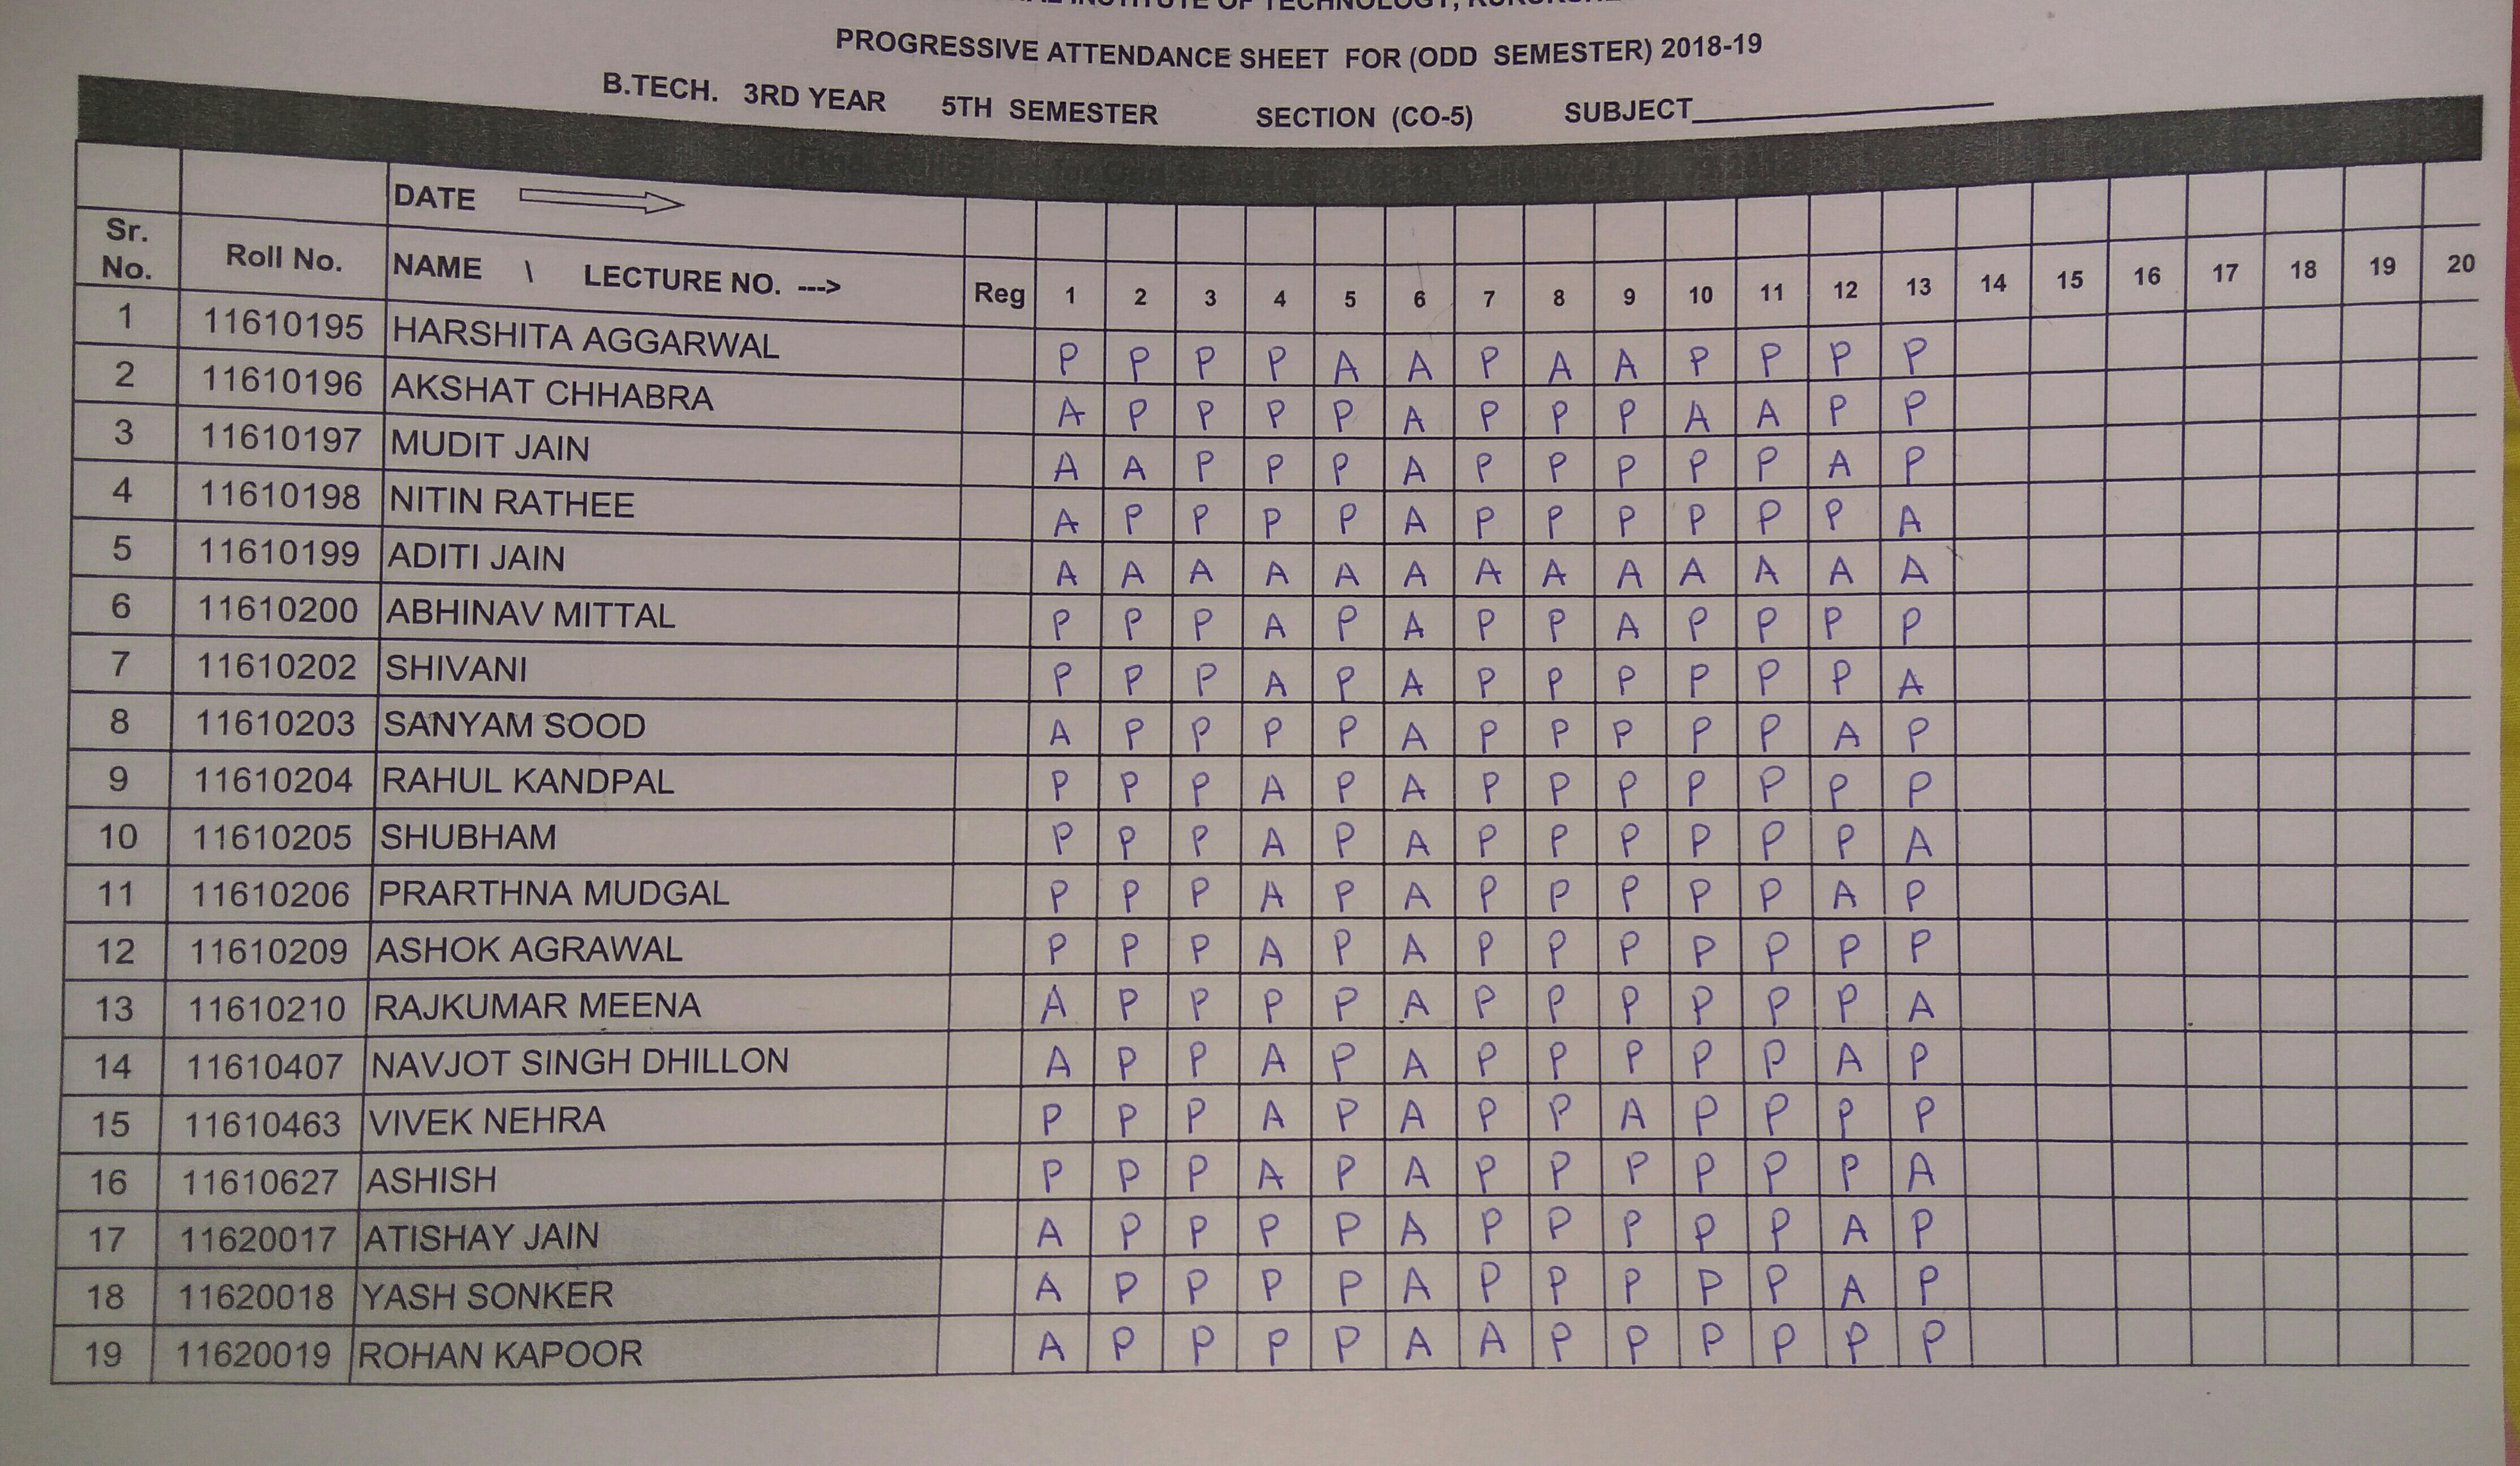 INSTITUTE OF TECHNOLOGY,
PROGRESSIVE ATTENDANCE SHEET FOR (ODD SEMESTER) 2018-19
B.TECH. 3RD YEAR 5TH SEMESTER SECTION (CO-5) SUBJECT
DATE
Sr. No. Roll No. NAME \ LECTURE NO. ---> Reg 1 2 3 4 5 6 7 8 9 10 11 12 13 14 15 16 17 18 19 20
1 11610195 HARSHITA AGGARWAL P P P P A A P A A P P P P
2 11610196 AKSHAT CHHABRA A P P P P A P P P A A P P
3 11610197 MUDIT JAIN A A P P P A P P P P P A P
4 11610198 NITIN RATHEE A P P P P A P P P P P P A
5 11610199 ADITI JAIN A A A A A A A A A A A A A
6 11610200 ABHINAV MITTAL P P P A P A P P A P P P P
7 11610202 SHIVANI P P P A P A P P P P P P A
8 11610203 SANYAM SOOD A P P P P A P P P P P A P
9 11610204 RAHUL KANDPAL P P P A P A P P P P P P P
10 11610205 SHUBHAM P P P A P A P P P P P P A
11 11610206 PRARTHNA MUDGAL P P P A P A P P P P P A P
12 11610209 ASHOK AGRAWAL P P P A P A P P P P P P P
13 11610210 RAJKUMAR MEENA A P P P P A P P P P P P A
14 11610407 NAVJOT SINGH DHILLON A P P A P A P P P P P A P
15 11610463 VIVEK NEHRA P P P A P A P P A P P P P
16 11610627 ASHISH P P P A P A P P P P P P A
17 11620017 ATISHAY JAIN A P P P P A P P P P P A P
18 11620018 YASH SONKER A P P P P A P P P P P A P
19 11620019 ROHAN KAPOOR A P P P P A A P P P P P P